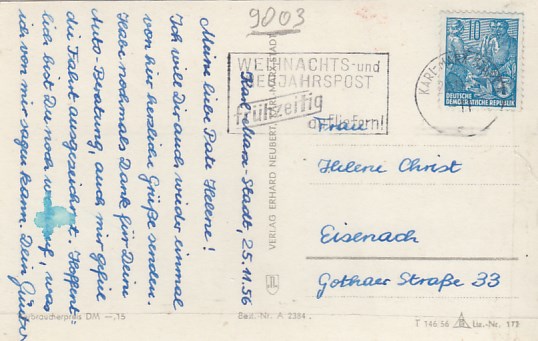 9003
Karl-Marx-Stadt, 25.11.56
Meine liebe Pate Helene!
Ich will Dir auch wieder einmal
von hier herzliche Grüße senden.
Habe nochmals Dank für Deine
Auto-Beratung, auch mir gefiel
die Fahrt ausgezeichnet. Hoffent-
lich bist Du noch wohlauf, was
ich von mir sagen kann. Dein Günter
WEIHNACHTS- und
NEUJAHRSPOST
frühzeitig
aufliefern!
KARL-MARX-STADT
10
DEUTSCHE
DEMOKRATISCHE REPUBLIK
Frau
Helene Christ
Eisenach
Gothaer Straße 33
VERLAG ERHARD NEUBERT, KARL-MARX-STADT
Verbraucherpreis DM —,15
Best.-Nr. A 2384
T 146/56 Liz.-Nr. 173